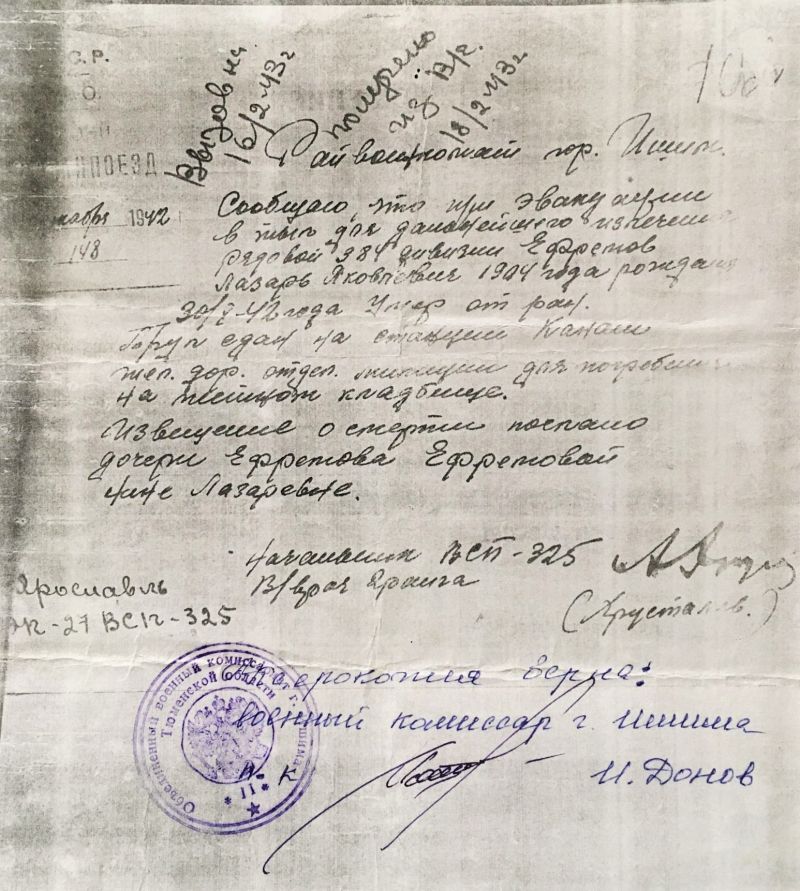 С.Р.
ПОЕЗД
кабря 1942
148
Вызовна
16/2-43г
получено
из В/к.
18/2-43г
Райвоенкомат гор. Ишим.
Сообщаю, что при эвакуации
в тыл для дальнейшего излечени
рядовой 984 дивизии Ефремов
Лазарь Яковлевич 1904 года рождени
42 года умер от ран.
Труп сдан на станции Канаш
жел. дор. отдел. милиции для погребени
на кладбище.
Извещение о смерти послано
дочери Ефремова Ефремовой
Нине Лазаревне.
Начальник ВСП-325
В/врач 3 ранга
(Хрусталев.)
Ярославль
27 ВСП-325
ерокопия верна:
военный комиссар г. Ишима
И. Донов
Объединенный военный комиссариат г. Ишима
Тюменской области
* II *